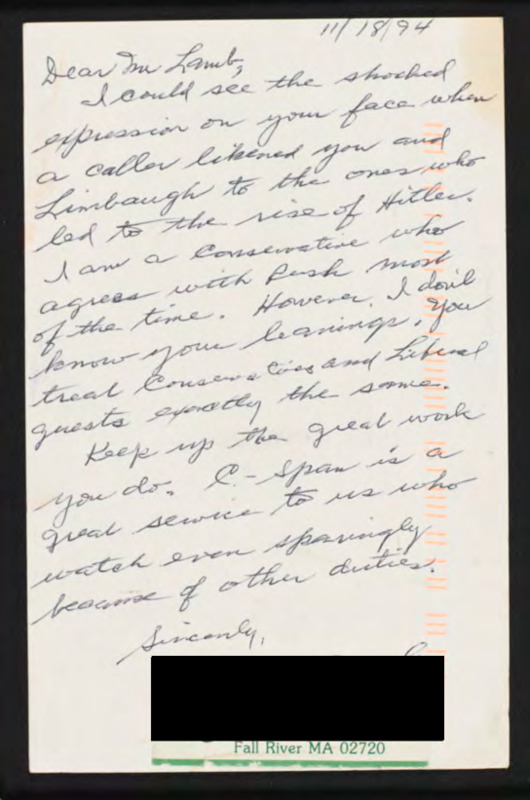 11/18/94
Dear Mr Lamb,
I could see the shocked
expression on your face when
a caller likened you and
Limbaugh to the ones who
led to the rise of Hitler.
I am a conservative who
agrees with Rush most
of the time. However, I don't
know your leanings. You
treat Conservatives and Liberal
guests exactly the same.
Keep up the great work
you do. C-Span is a
great service to us who
watch even sparingly
because of other duties.
Sincerely,
Fall River MA 02720